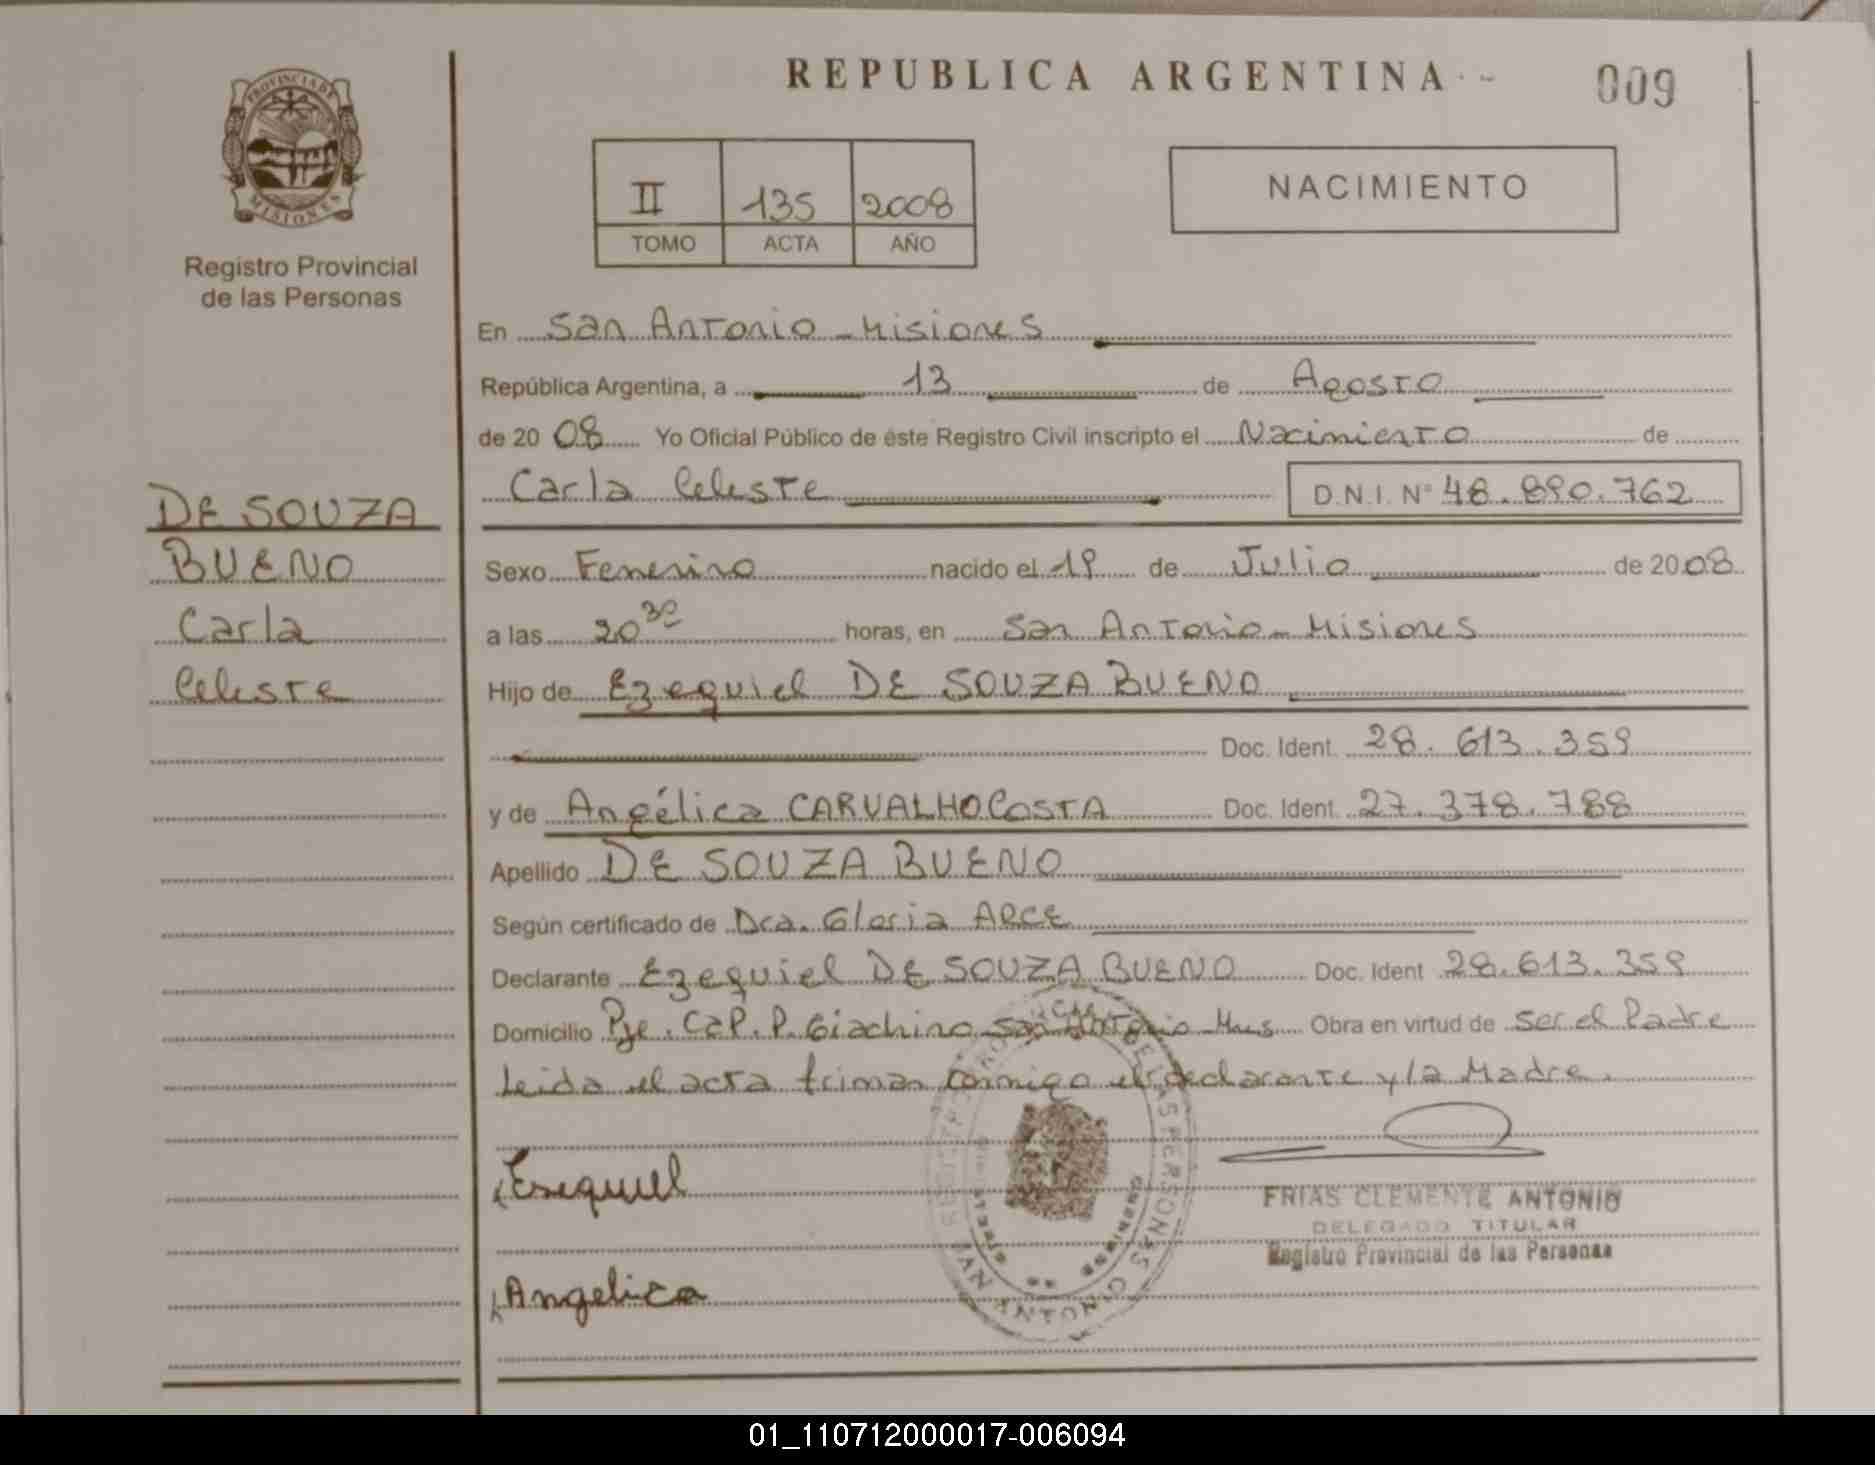 REPUBLICA ARGENTINA
009
PROVINCIA DE MISIONES
Registro Provincial
de las Personas
II 135 2008
TOMO ACTA AÑO
NACIMIENTO
En San Antonio - Misiones
República Argentina, a 13 de Agosto
de 20 08 Yo Oficial Público de éste Registro Civil inscripto el Nacimiento de
Carla Celeste D.N.I. Nº 48.890.762
DE SOUZA
BUENO
Carla
Celeste
Sexo Femenino nacido el 19 de Julio de 20 08
a las 20 30 horas, en San Antonio - Misiones
Hijo de Ezequiel DE SOUZA BUENO
Doc. Ident. 28.613.359
y de Angélica CARVALHO COSTA Doc. Ident. 27.378.788
Apellido DE SOUZA BUENO
Según certificado de Dra. Gloria ARCE
Declarante Ezequiel DE SOUZA BUENO Doc. Ident 28.613.359
Domicilio Pje. Cap. P. Giachino San Antonio - Mnes Obra en virtud de ser el Padre
Leida el acta firman conmigo el declarante y la Madre.
Ezequiel
Angelica
REGISTRO PROVINCIAL DE LAS PERSONAS
SAN ANTONIO
FRIAS CLEMENTE ANTONIO
DELEGADO TITULAR
Registro Provincial de las Personas
01_110712000017-006094